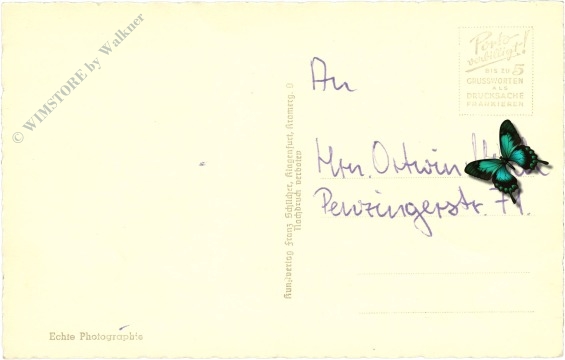 © WIMSTORE by Walkner
Porto
verbilligt!
BIS ZU 5
GRUSSWORTEN
ALS
DRUCKSACHE
FRANKIEREN
An
Hrn. Ortwin
Penzingerstr. 71.
Kunstverlag Franz Schilcher, Klagenfurt, Kramerg. 9
Nachdruck verboten
Echte Photographie